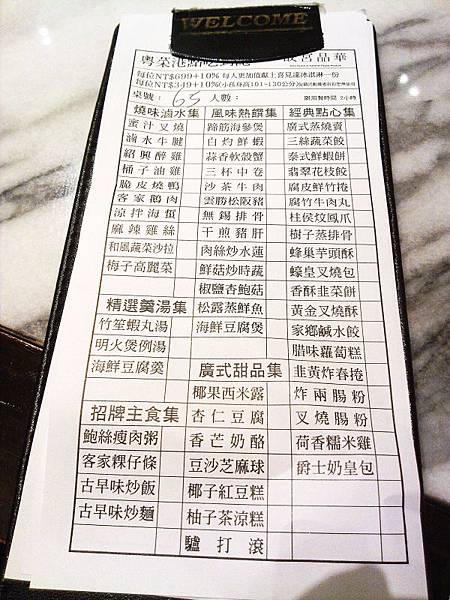 WELCOME
粵菜港點吃到飽 故宮晶華
每位NT$699+10% 每人更加值獻上喜見達冰淇淋一份
每位NT$349+10%(小孩身高101~130公分)
桌號: 65 人數: 限用餐時間 2小時
燒味滷水集 風味熱饌集 經典點心集
蜜汁叉燒 蹄筋海參煲 廣式蒸燒賣
滷水牛腱 白灼鮮蝦 三絲蔬菜餃
紹興醉雞 蒜香軟殼蟹 泰式鮮蝦餅
桶子油雞 三杯中卷 翡翠花枝餃
脆皮燒鴨 沙茶牛肉 腐皮鮮竹捲
客家鵝肉 雲勝松阪豬 腐竹牛肉丸
涼拌海蜇 無錫排骨 柱侯炆鳳爪
麻辣雞絲 干煎豬肝 樹子蒸排骨
和風蔬菜沙拉 肉絲炒水蓮 蜂巢芋頭酥
梅子高麗菜 鮮菇炒時蔬 蠔皇叉燒包
椒鹽杏鮑菇 香酥韭菜餅
精選羹湯集 松露蒸鮮魚 黃金叉燒酥
竹笙蝦丸湯 海鮮豆腐煲 家鄉鹹水餃
明火煲例湯 腊味蘿蔔糕
海鮮豆腐羹 廣式甜品集 韭黃炸春捲
椰果西米露 炸兩腸粉
招牌主食集 杏仁豆腐 叉燒腸粉
鮑絲瘦肉粥 香芒奶酪 荷香糯米雞
客家粿仔條 豆沙芝麻球 爵士奶皇包
古早味炒飯 椰子紅豆糕
古早味炒麵 柚子茶涼糕
驢打滾